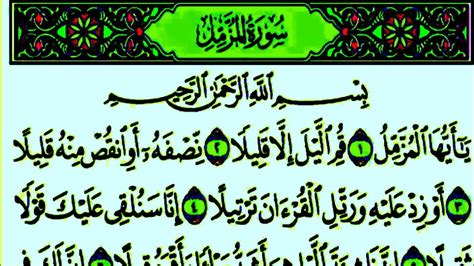 سُورَةُ المُزَّمِّل
بِسْمِ ٱللَّهِ ٱلرَّحْمَٰنِ ٱلرَّحِيمِ
يَٰٓأَيُّهَا ٱلْمُزَّمِّلُ ١ قُمِ ٱلَّيْلَ إِلَّا قَلِيلًا ٢ نِّصْفَهُۥٓ أَوِ ٱنقُصْ مِنْهُ قَلِيلًا
٣ أَوْ زِدْ عَلَيْهِ وَرَتِّلِ ٱلْقُرْءَانَ تَرْتِيلًا ٤ إِنَّا سَنُلْقِى عَلَيْكَ قَوْلًا